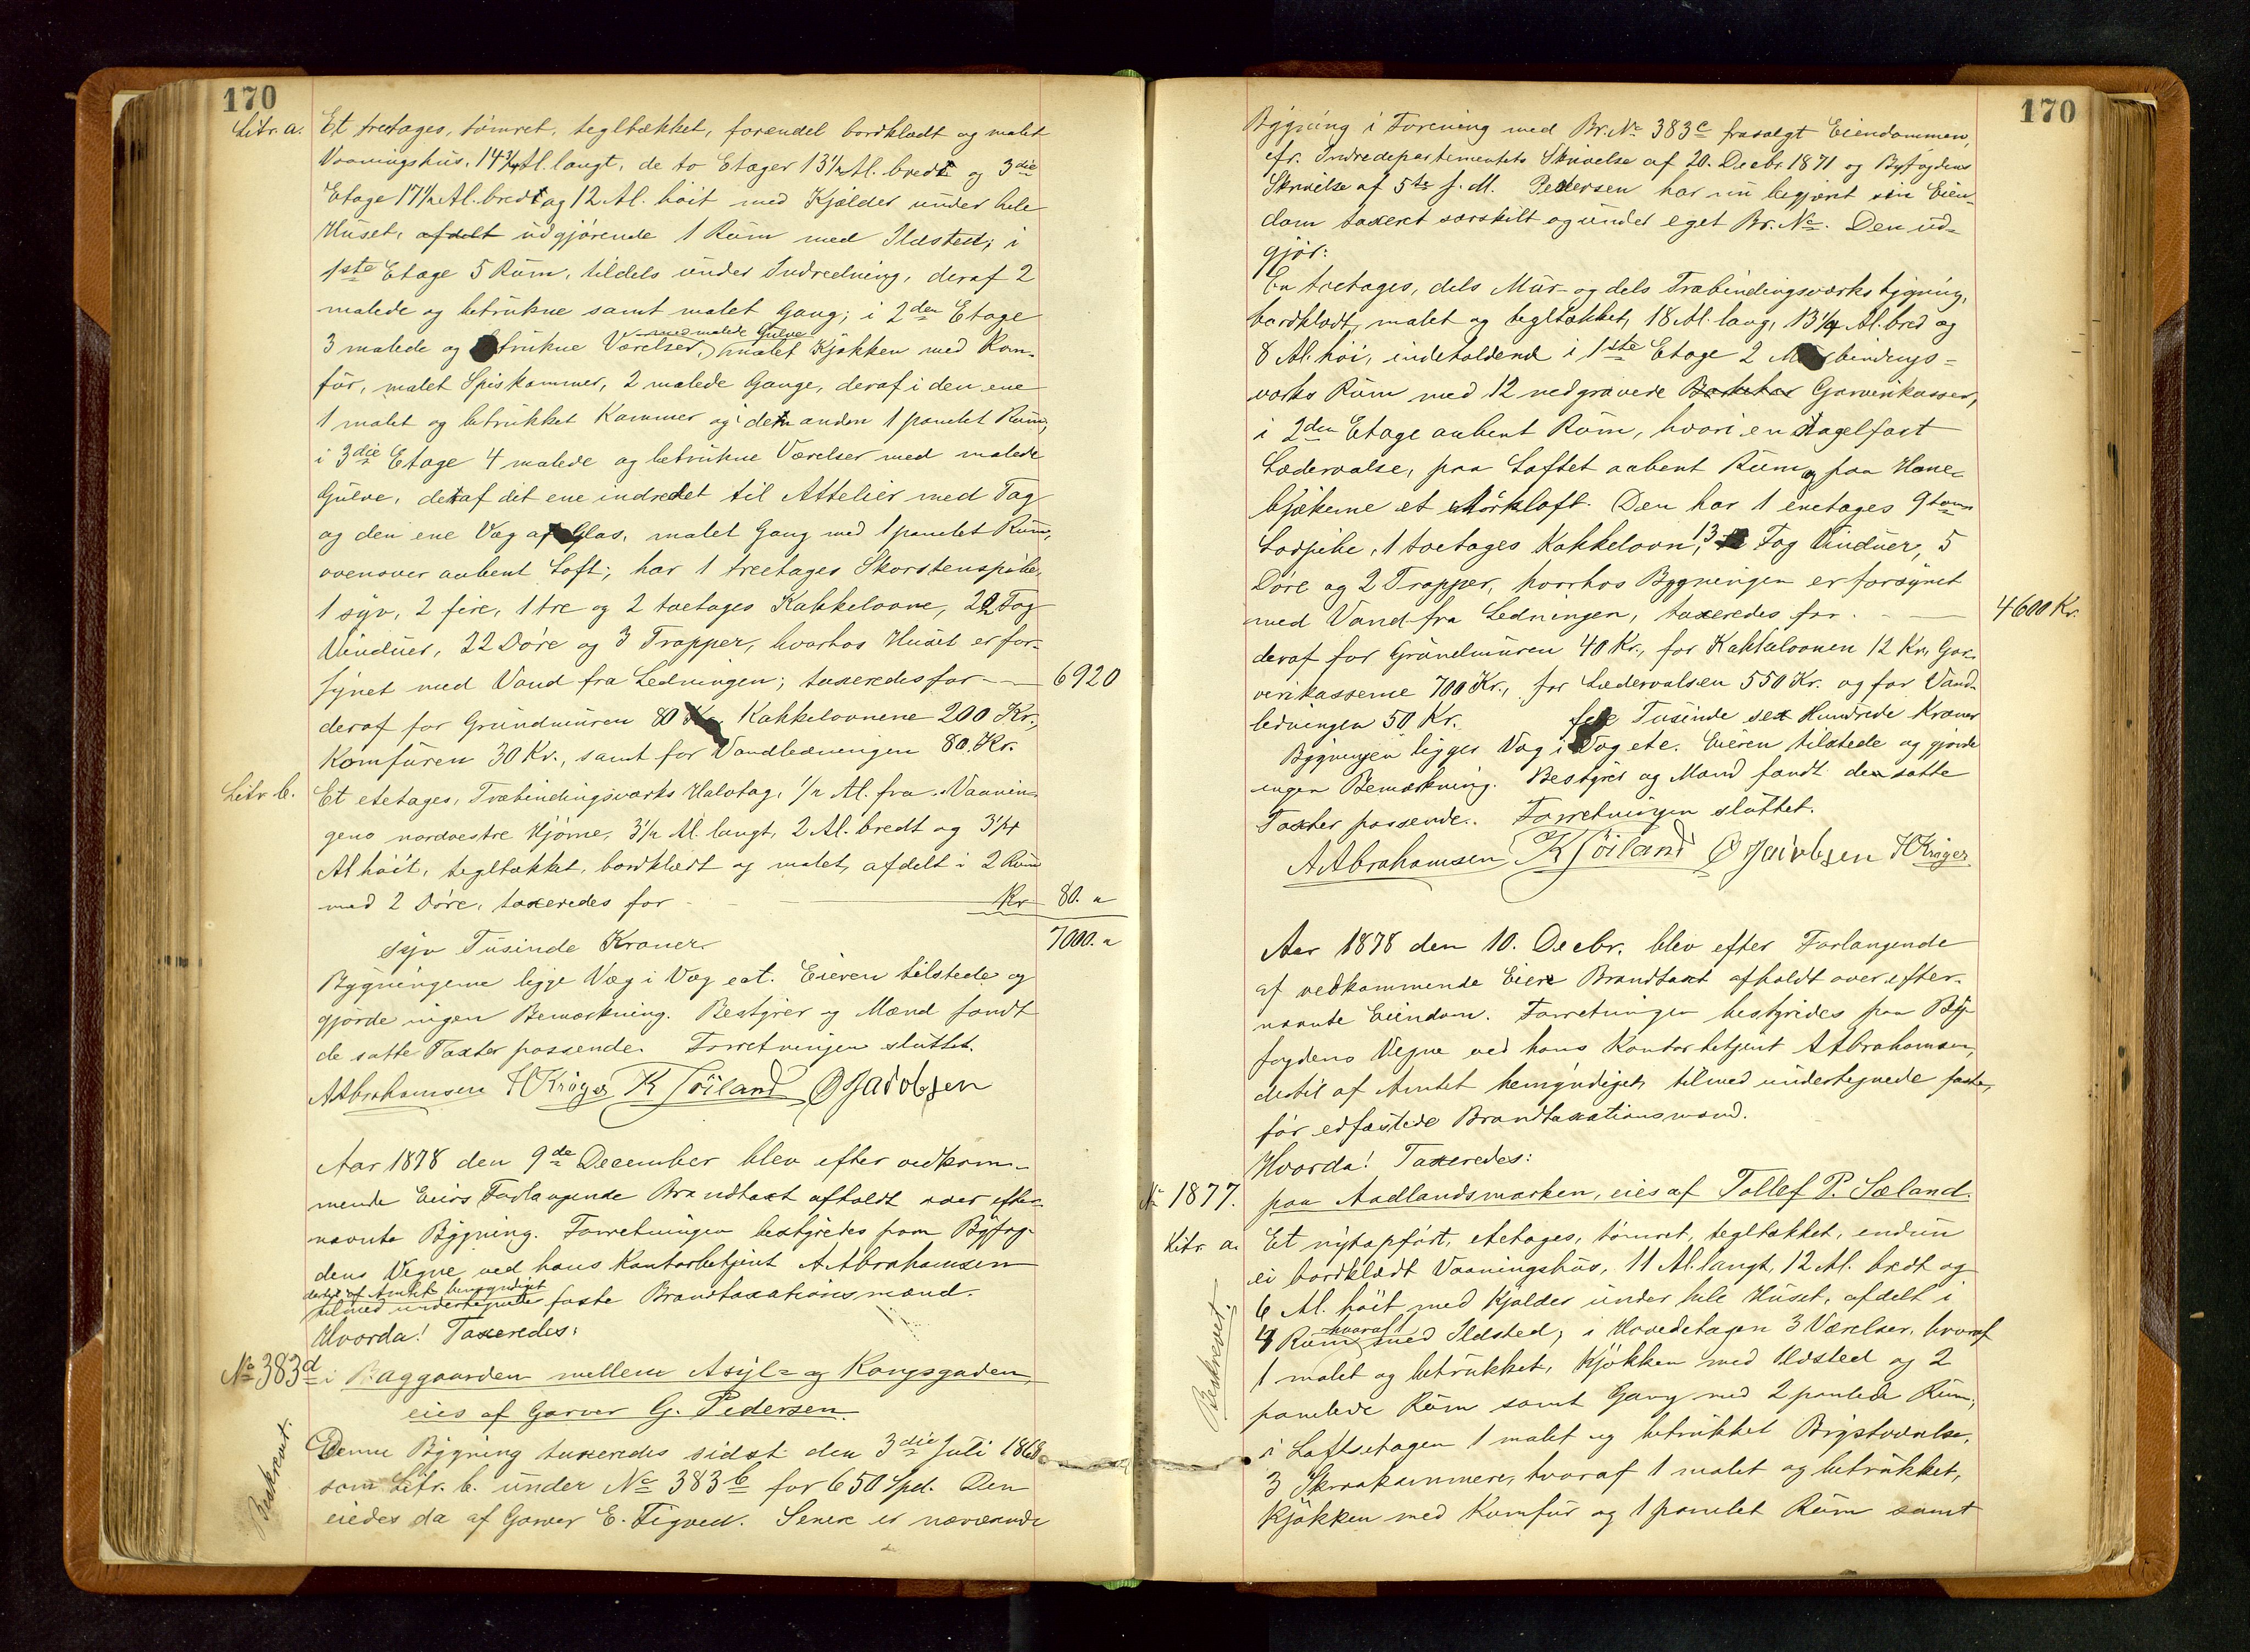 170
Litr. a. Et tretages, tömret, tegltækket, forendel bordklædt og malet
Vaaningshus, 14 3/4 Al. langt, de to Etager 13 1/2 Al. bredt og 3die
Etage 17 1/2 Al. bredt og 12 Al. höit med Kjælder under hele
Huset, afdelt udgjörende 1 Rum med Ildsted; i
1ste Etage 5 Rum, tildels under Indredning, deraf 2
malede og betrukne samt malet Gang; i 2den Etage
3 malede og betrukne Værelser, med malede Gulve malet Kjökken med Kom-
für, malet Spiskammer, 2 malede Gange, deraf i den ene
1 malet og betrukket Kammer og i den anden 1 panelet Rum,
i 3die Etage 4 malede og betrukne Værelser med malede
Gulve, deraf det ene indredet til Attelier med Tag
og den ene Væg af Glas, malet Gang med 1 panelet Rum,
ovenover aabent Loft; har 1 treetages Skorstenspibe,
1 syv, 2 fire, 1 tre og 2 toetages Kakkelovne, 22 Fag
Vinduer, 22 Döre og 3 Trapper, hvorhos Huset er for-
synet med Vand fra Ledningen; taxeredes for 6920
deraf for Grundmuren 80 Kr. Kakkelovnene 200 Kr.,
Komfuren 30 Kr., samt for Vandledningen 80. Kr.
Litr b. Et etetages, Træbindingsværks Halvtag, 1/2 Al. fra Vaanin-
gens nordvestre Hjörne, 3 1/2 Al. langt, 2 Al. bredt og 3 1/4
Al höit, tegltækket, bordklædt og malet, afdelt i 2 Rum
med 2 Döre, taxeredes for Kr 80. "
7000. "
Syv Tusinde Kroner
Bygningerne ligge Væg i Væg ect. Eieren tilstede og
gjörde ingen Bemærkning. Bestyrer og Mænd fandt
de satte Taxter passende. Forretningen sluttet.
A Abrahamsen H Kröger K Töiland O Jacobsen
Aar 1878 den 9de December blev efter vedkom-
mende Eiers Forlangende Brandtaxt afholdt over efter-
nævnte Bygning. Forretningen bestyredes paa Byfog-
dens Vegne ved hans Kontorbetjent A Abrahamsen
dertil af Amtet bemyndiget
tilmed undertegnede faste Brandtaxationsmænd.
Hvorda! Taxeredes:
No 383d i Baggaarden mellem Asyl- og Kongsgaden,
eies af Garver G. Pedersen.
Beskrevet.
Denne Bygning taxeredes sidst den 3die Juli 1868
som Litr. b. under No 383b for 650 Spd. Den
eiedes da af Garver E. Tigved. Senere er nærværende
170
Bygning i Forening med Br. No 383c frasolgt Eiendommen,
cfr. Indredepartementets Skrivelse af 20. Decbr. 1871 og Byfogdens
Skrivelse af 5te f. M. Pedersen har nu begjært sin Eien-
dom taxeret særskilt og under eget Br. No. Den ud-
gjör:
En toetages, dels Mur- og dels Træbindingsværks bygning,
bordklædt, malet og tegltækket, 18 Al. lang, 13 1/4 Al. bred og
8 Al. höi, indeholdende i 1ste Etage 2 Murbindings-
værks Rum med 12 nedgravede Garverikasser,
i 2den Etage aabent Rum, hvori en Nagelfast
Lædervalse, paa Loftet aabent Rum og paa Hane-
bjækerne et Mörkloft. Den har 1 enetages 9 tom
Lodpibe, 1 toetages Kakkelovn, 13 Fag Vinduer, 5
Döre og 2 Trapper, hvorhos Bygningen er forsynet
med Vand fra Ledningen, taxeredes for 4600 Kr.
deraf for Grundmuren 40 Kr., for Kakkelovnen 12 Kr., Gar-
verikasserne 700 Kr., for Lædervalsen 550 Kr. og for Vand-
ledningen 50 Kr. fire Tusinde sex Hundrede Kroner
Bygningen ligger Væg i Væg etc. Eieren tilstede og gjorde
ingen Bemærkning. Bestyrer og Mænd fandt den satte
Taxter passende. Forretningen sluttet.
A Abrahamsen K Töiland O Jacobsen H Kröger
Aar 1878 den 10. Decbr. blev efter Forlangende
af vedkommende Eiere Brandtaxt afholdt over efter-
nævnte Eiendom. Forretningen bestyredes paa By-
fogdens Vegne ved hans Kontorbetjent A Abrahamsen,
dertil af Amtet bemyndiget, tilmed undertegnede faste,
för edfæstede Brandtaxationsmænd.
Hvorda! Taxeredes:
No 1877. paa Aadlandsmarken, eies af Tollef P. Sæland.
Litr. a. Et nyopfört, etetages, tömret, tegltækket, endnu
ei bordklædt Vaaningshus, 11 Al. langt, 12 Al. bredt og
6 Al. höit med Kjælder under hele Huset, afdelt i
4 Rum, hvoraf 1 med Ildsted; i Hovedetagen 3 Værelser, hvoraf
1 malet og betrukket, Kjökken med Ildsted og 2
panelede Rum samt Gang med 2 panelede Rum;
i Loftsetagen 1 malet og betrukket Brystværelse,
3 Skraakammere, hvoraf 1 malet og betrukket,
Kjökken med Komfur og 1 panelet Rum samt
Beskrevet.